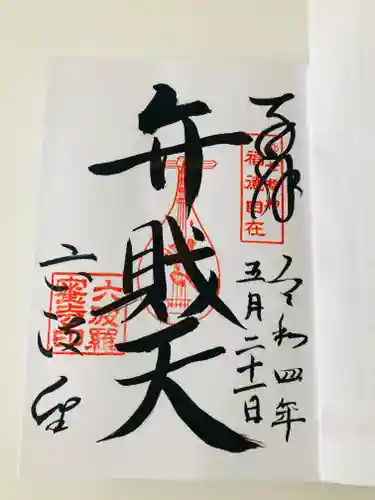 奉拝
令和四年
五月二十一日
福徳自在
弁財天
六波羅
六波羅
密寺印